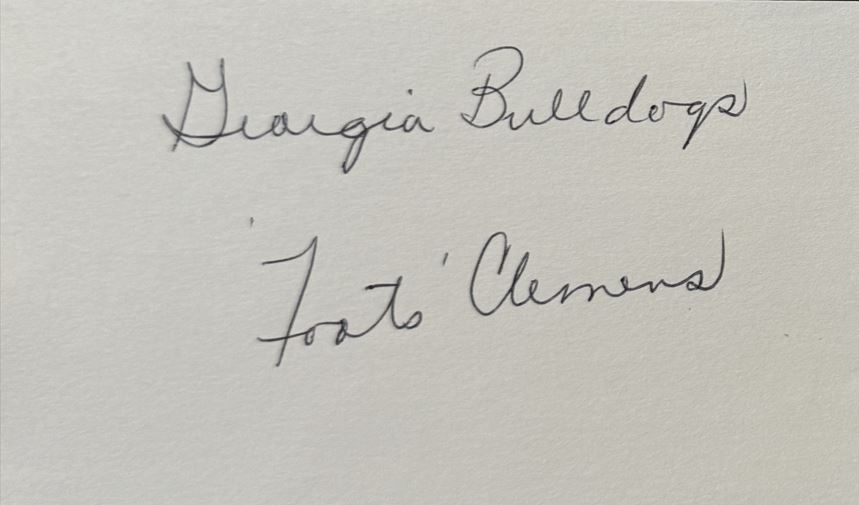 Georgia Bulldogs
'Foots' Clemens